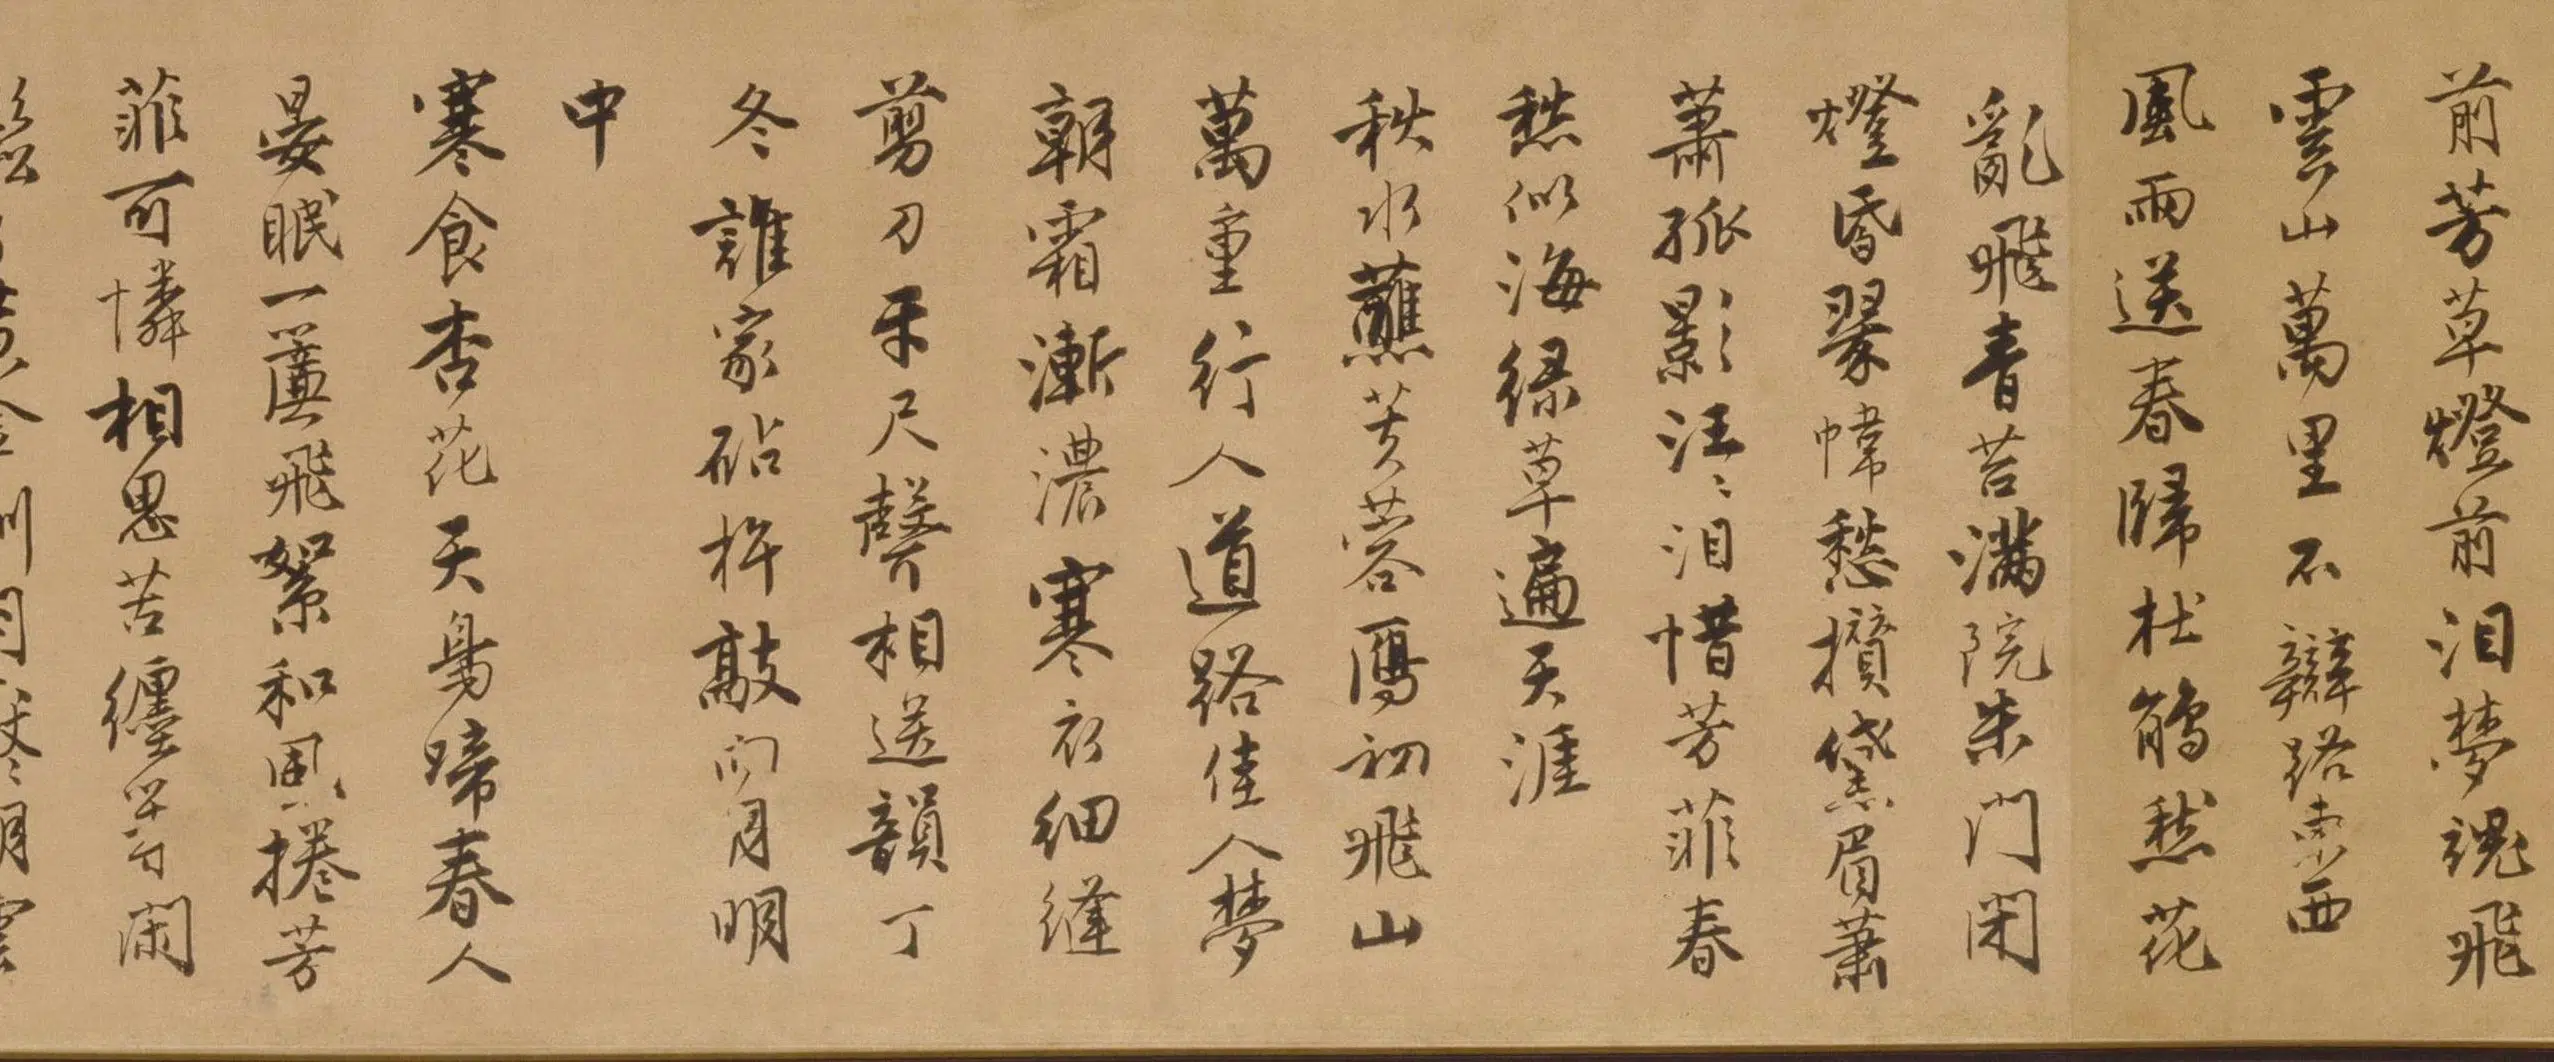 前芳草燈前泪夢魂飛
雲山萬里不辯路東西
風雨送春歸杜鵑愁花
亂飛青苔滿院朱門閉
燈昏翠幃愁攢黛眉蕭
蕭孤影汪〻泪惜芳菲春
愁似海綠草遍天涯
秋水蘸芙蓉鴈初飛山
萬重行人道路佳人夢
朝霜漸濃寒衣細縫
剪刀牙尺聲相送韻丁
冬誰家砧杵敲向月明
中
寒食杏花天鳥啼春人
晏眠一簾飛絮和風捲芳
菲可憐相思苦纏等閑